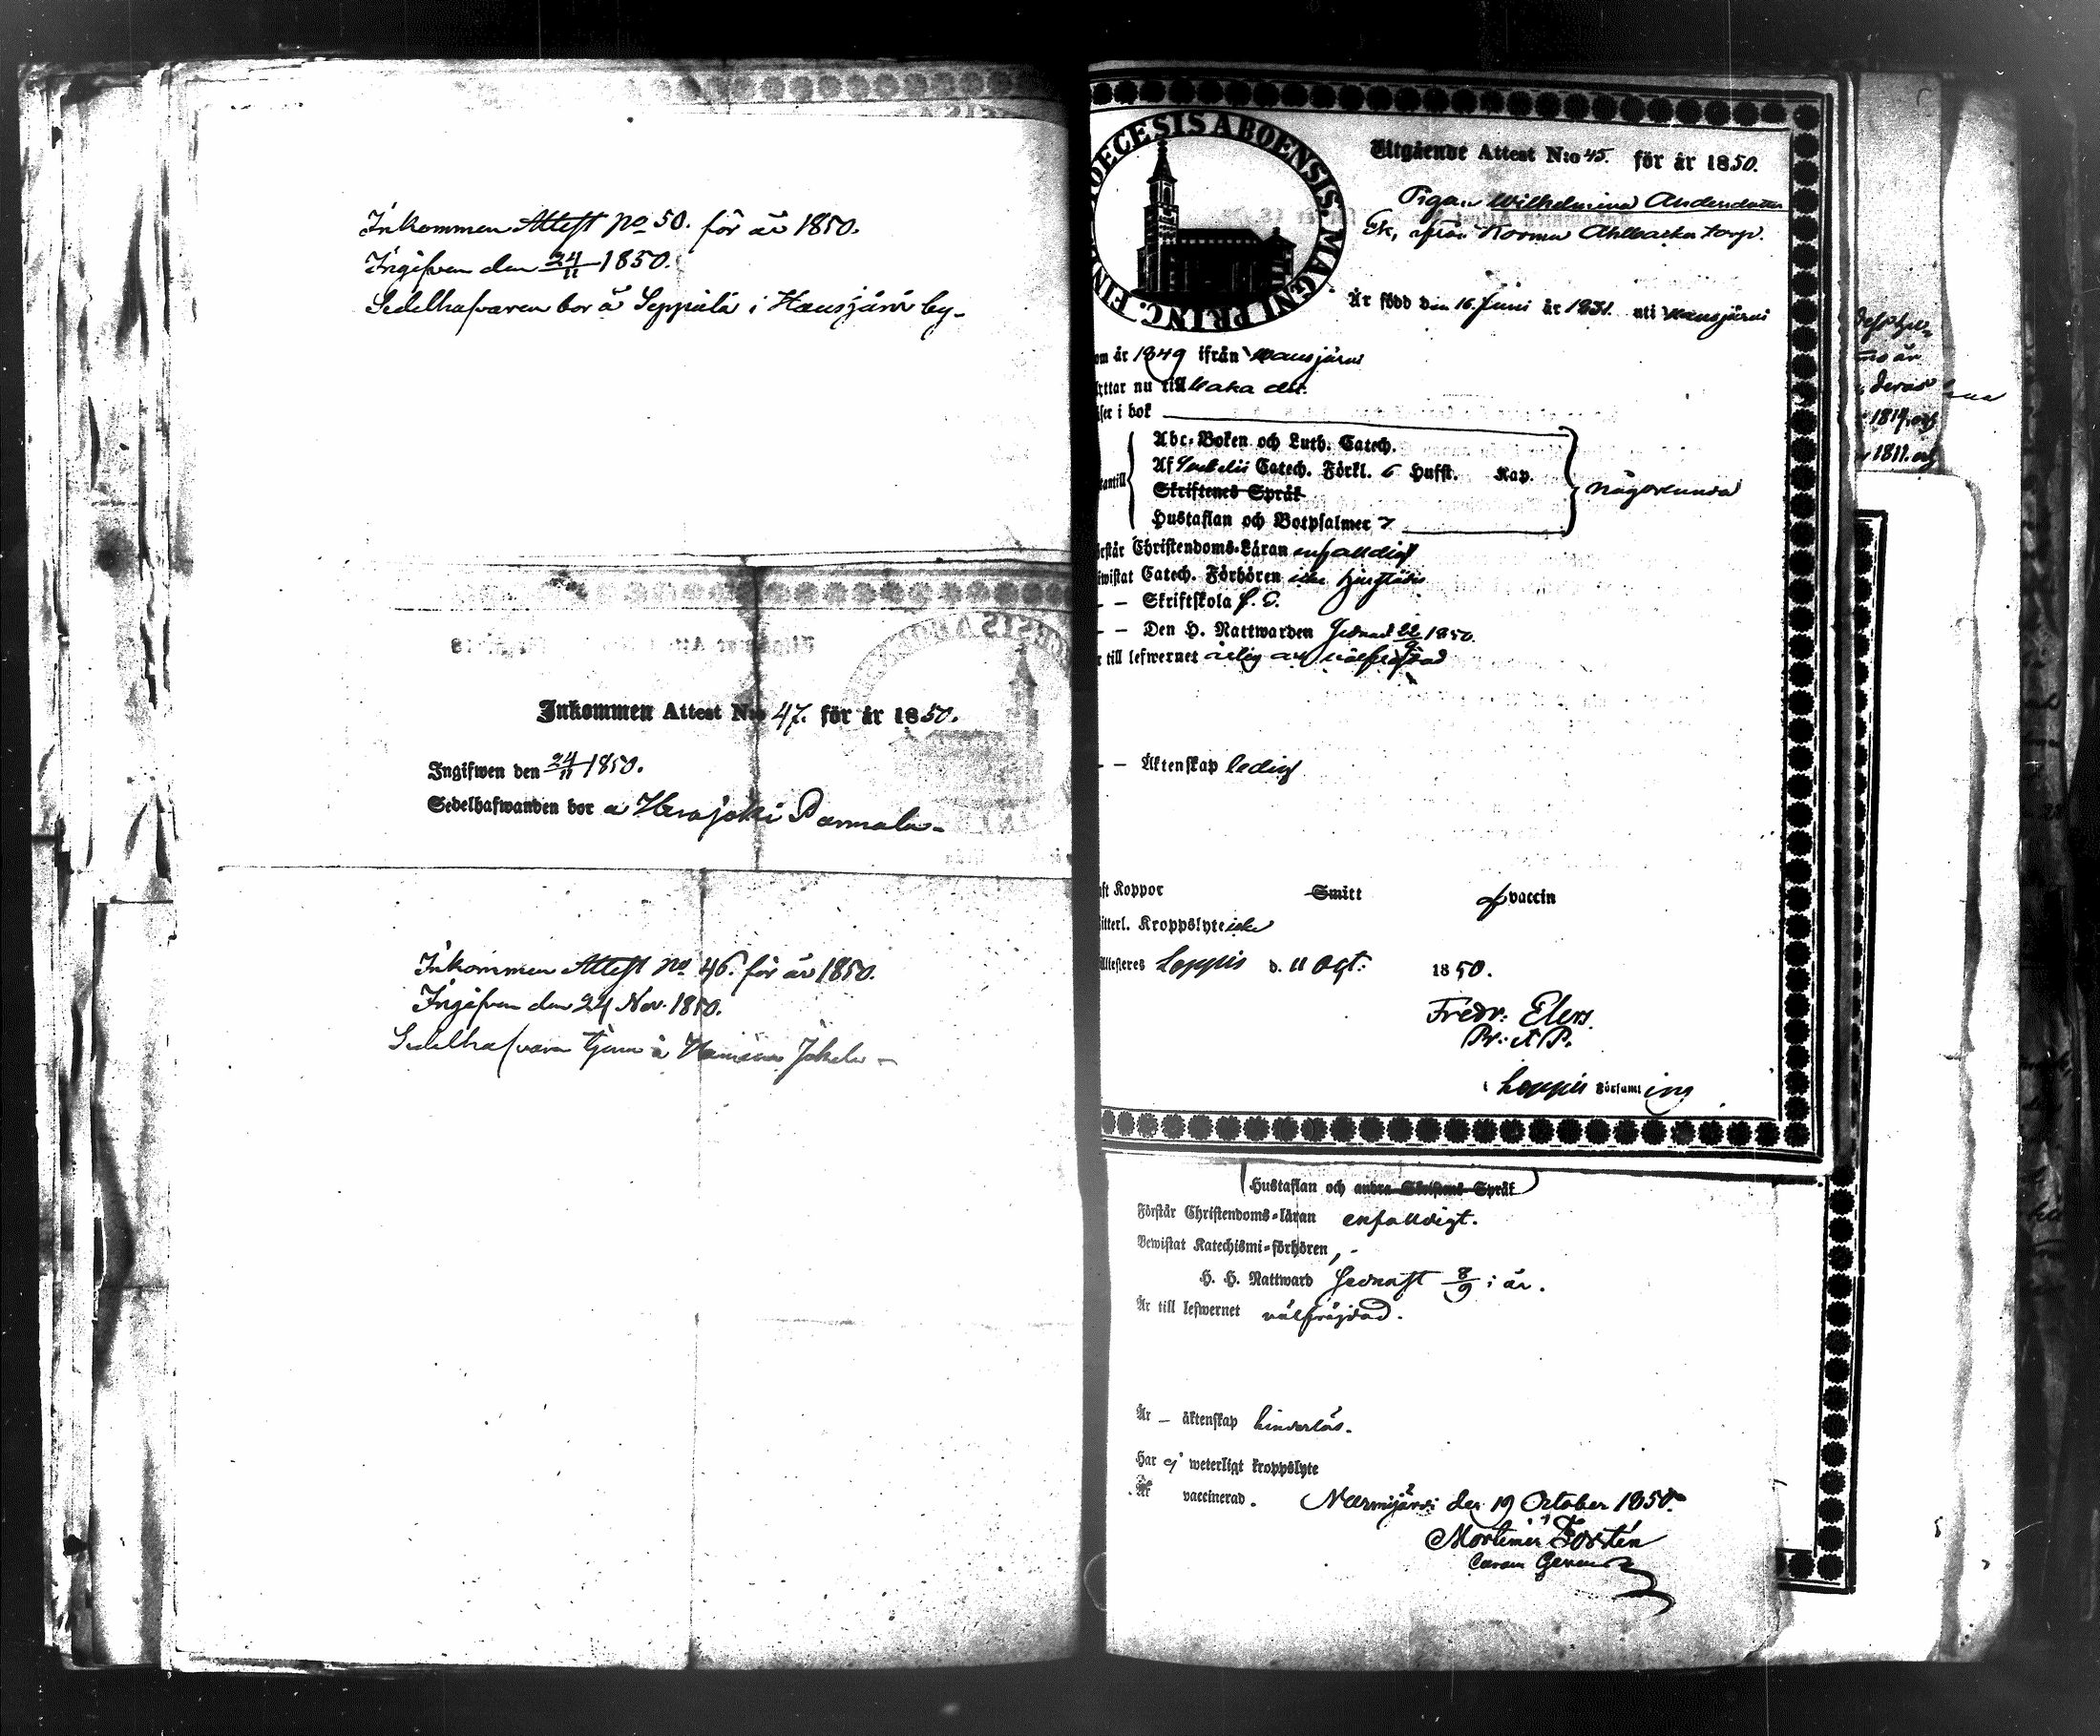 Inkommen Attest No 50. för år 1850.
Ingifven den 24/11 1850.
Sedelhafvaren bor å Seppälä i Hausjärvi by.
Inkommen Attest N:o 47. för år 1850.
Ingifwen den 24/11 1850.
Sedelhafwanden bor å Herajoki Parmala.
Inkommen Attest No 46. för år 1850.
Ingifven den 24 Nov. 1850.
Sedelhafvaren tjenar å Jokela
OECESIS ABOENSIS. MAGNI PRINC. FIN
Utgående Attest N:o 45. för år 1850.
Pigan Wilhelmina Andersdotter
Ek, ifrån Kormu Ahlbacka torp.
Är född den 16 Juni år 1831. uti Hausjärvi
om år 1849 ifrån Hausjärvi
yttar nu till baka dit.
äser i bok
antill
Abc-Boken och Luth. Catech.
Af Svebelii Catech. Förkl. 6 Hufst. Kap.
Skriftenes Språk
Hustaflan och Botpsalmer 7
någorlunda
örstår Christendoms-Läran enfaldigt
iwistat Catech. Förhören icke
— — Skriftskola
— — Den H. Nattwarden Sednast 22/9 1850.
r till lefwernet ärlig och välfrejdad
— — Äktenskap ledig
aft Koppor Smitt af vaccin
itterl. Kroppslyte icke
Attesteras Loppis d. 11 Oct: 1850.
Fredr: Elers.
Pr. & P.
i Loppis Församling
Hustaflan och andra Skriftens Språk
Förstår Christendoms-läran enfaldigt.
Bewistat Katechismi-förhören, -
H. H. Nattward Sednast 8/9 i år.
Är till lefwernet välfräjdad.
Är — äktenskap hinderlös.
Har ej weterligt kroppslyte
Är vaccinerad. Nurmijärvi den 19 October 1850.
Mortimer Forstén